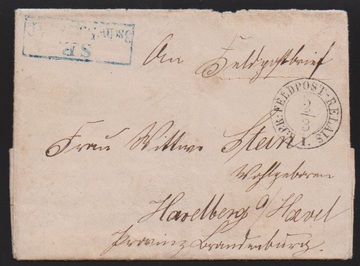 S.B.
An Feldpostbrief
K.PR.FELDPOST-RELAIS
2/3
I.
Frau Wittwe Stein
Wohlgeboren
Havelberg a/Havel
Provinz Brandenburg.